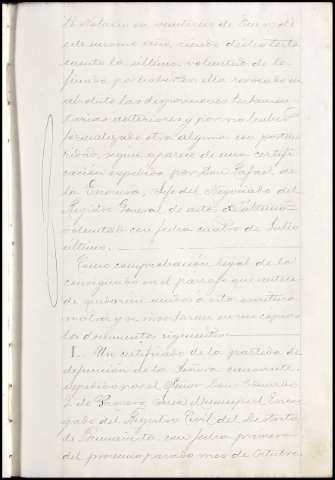 te Notario en veintiseis de Enero de
este mismo año, siendo dicho testa
mento la última voluntad de la
finada por haber en ella revocado en
absoluto las disposiciones testamen
tarias anteriores y por no haber
formalizado otra alguna con poste
ridad, según aparece de una certifi
cación expedida por Don Rafael de
la Escosura, Jefe del Negociado del
Registro General de actos de última
voluntad con fecha cuatro de Julio
último.
Como comprobación legal de lo
consignado en el párrafo que antece
de quedarán unidos a esta escritura
matriz y se insertarán en sus copias
los documentos siguientes:
1. Un certificado de la partida de
defunción de la Señora causante
expedido por el Señor Don Eduardo
Juez Municipal Encar
gado del Registro Civil del Distrito
de con fecha primero
del próximo pasado mes de Octubre